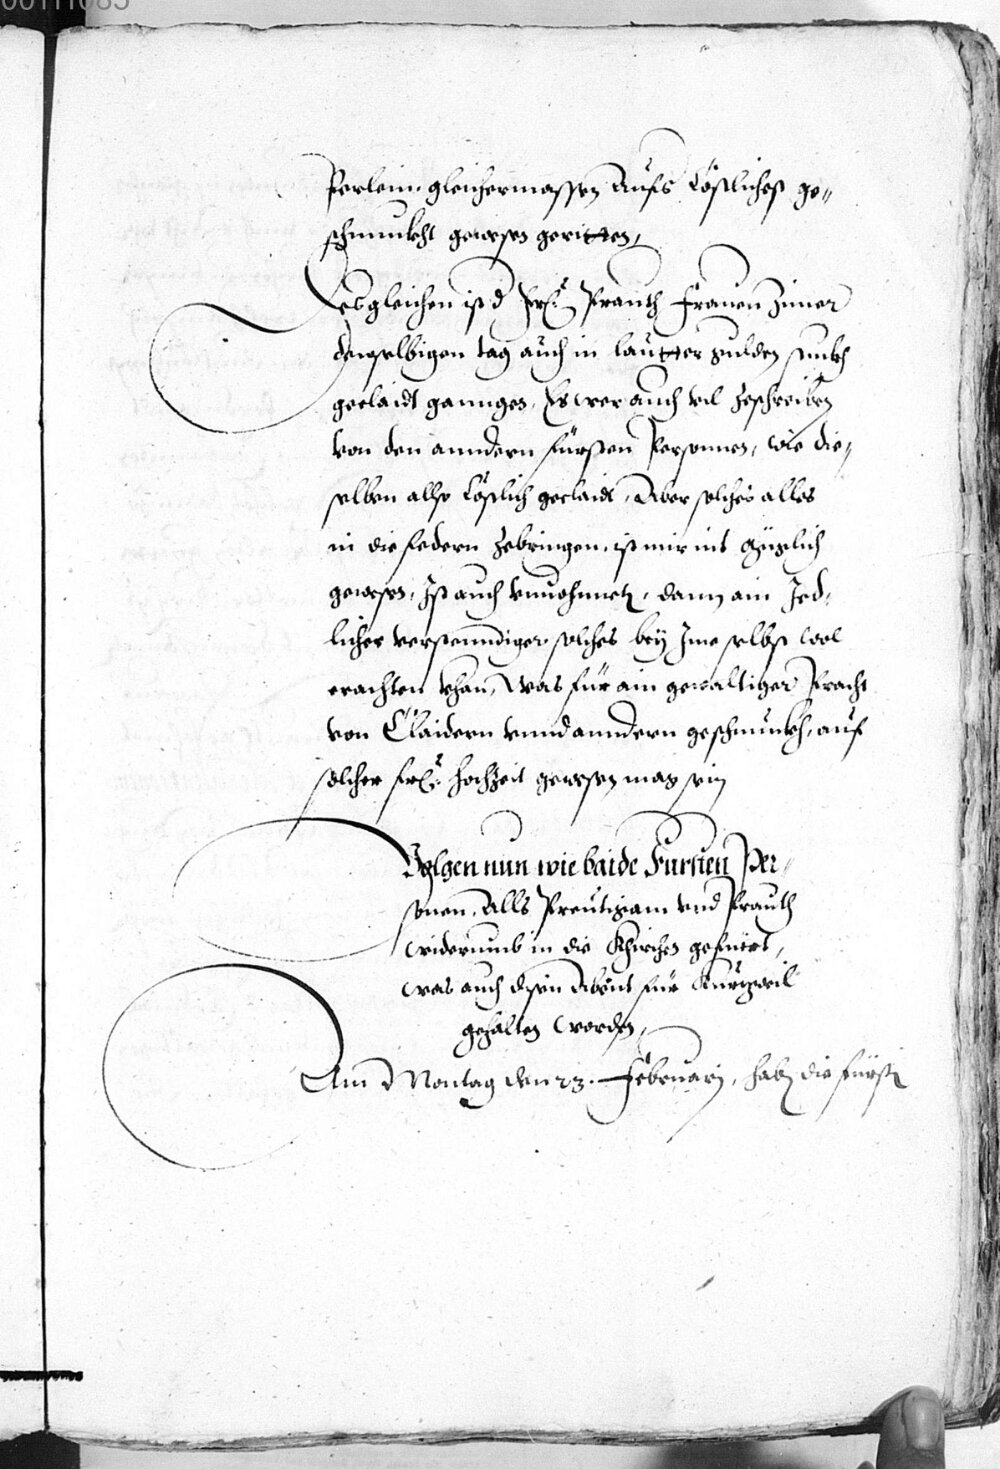 Perlein gleichermassen Aufs Cöstlichest ge„
schmuckht gewesen geritten,
Desgleichen ist d frl: Prauth Frauen Zimer
denselbigen tag auch in lautter gulden stuckh
geclaidt ganngen, Es wer auch vil zeschreiben
von den anndern Fürsten Personnen, wie die„
selben allso Cöstlich geclaidt, Aber solches alles
in die federn zebringen, ist mir nit
gewesen, Ist auch vnuonnetn, dann ain Jed„
licher verstenndiger solches bey Jme selbst wol
erachten khan, Was für ain gewaltiger Pracht
von Claidern vnnd anndern geschmuckh, auf
solcher frl: hochzeit gewesen mag sein
Volgen nun wie baide Fursten Per„
sonen, Alls Preutigam vnd Prauth
widerumb in die Khirchen gefüert,
was auch disen Abent für Kurtzweil
gehalten worden,
Am Montag den 23. February, haben die fürstn